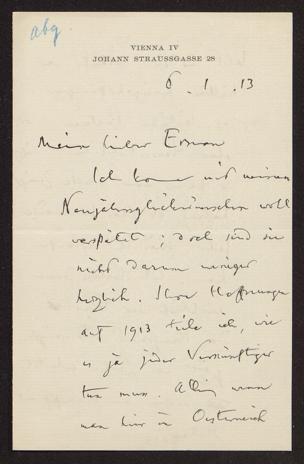 abg.
VIENNA IV
JOHANN STRAUSSGASSE 28
6. 1. 13
Mein lieber Erman
Ich komme mit meinen
Neujahrsglückwünschen wohl
verspätet; doch sind sie
nicht darum weniger
herzlich. Ihre Hoffnungen
auf 1913 teile ich, wie
es ja jeder Vernünftiger
tun muss. Allein wenn
man hier in Oesterreich